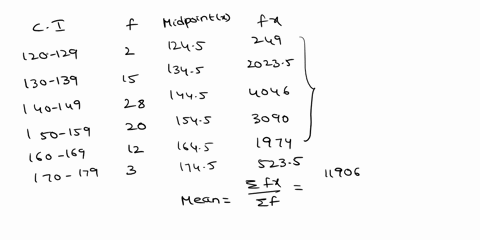 C.I f Midpoint(x) fx
120-129 2 124.5 249
130-139 15 134.5 2023.5
140-149 28 144.5 4046
150-159 20 154.5 3090
160-169 12 164.5 1974
170-179 3 174.5 523.5
Mean = Σfx/Σf = 11906